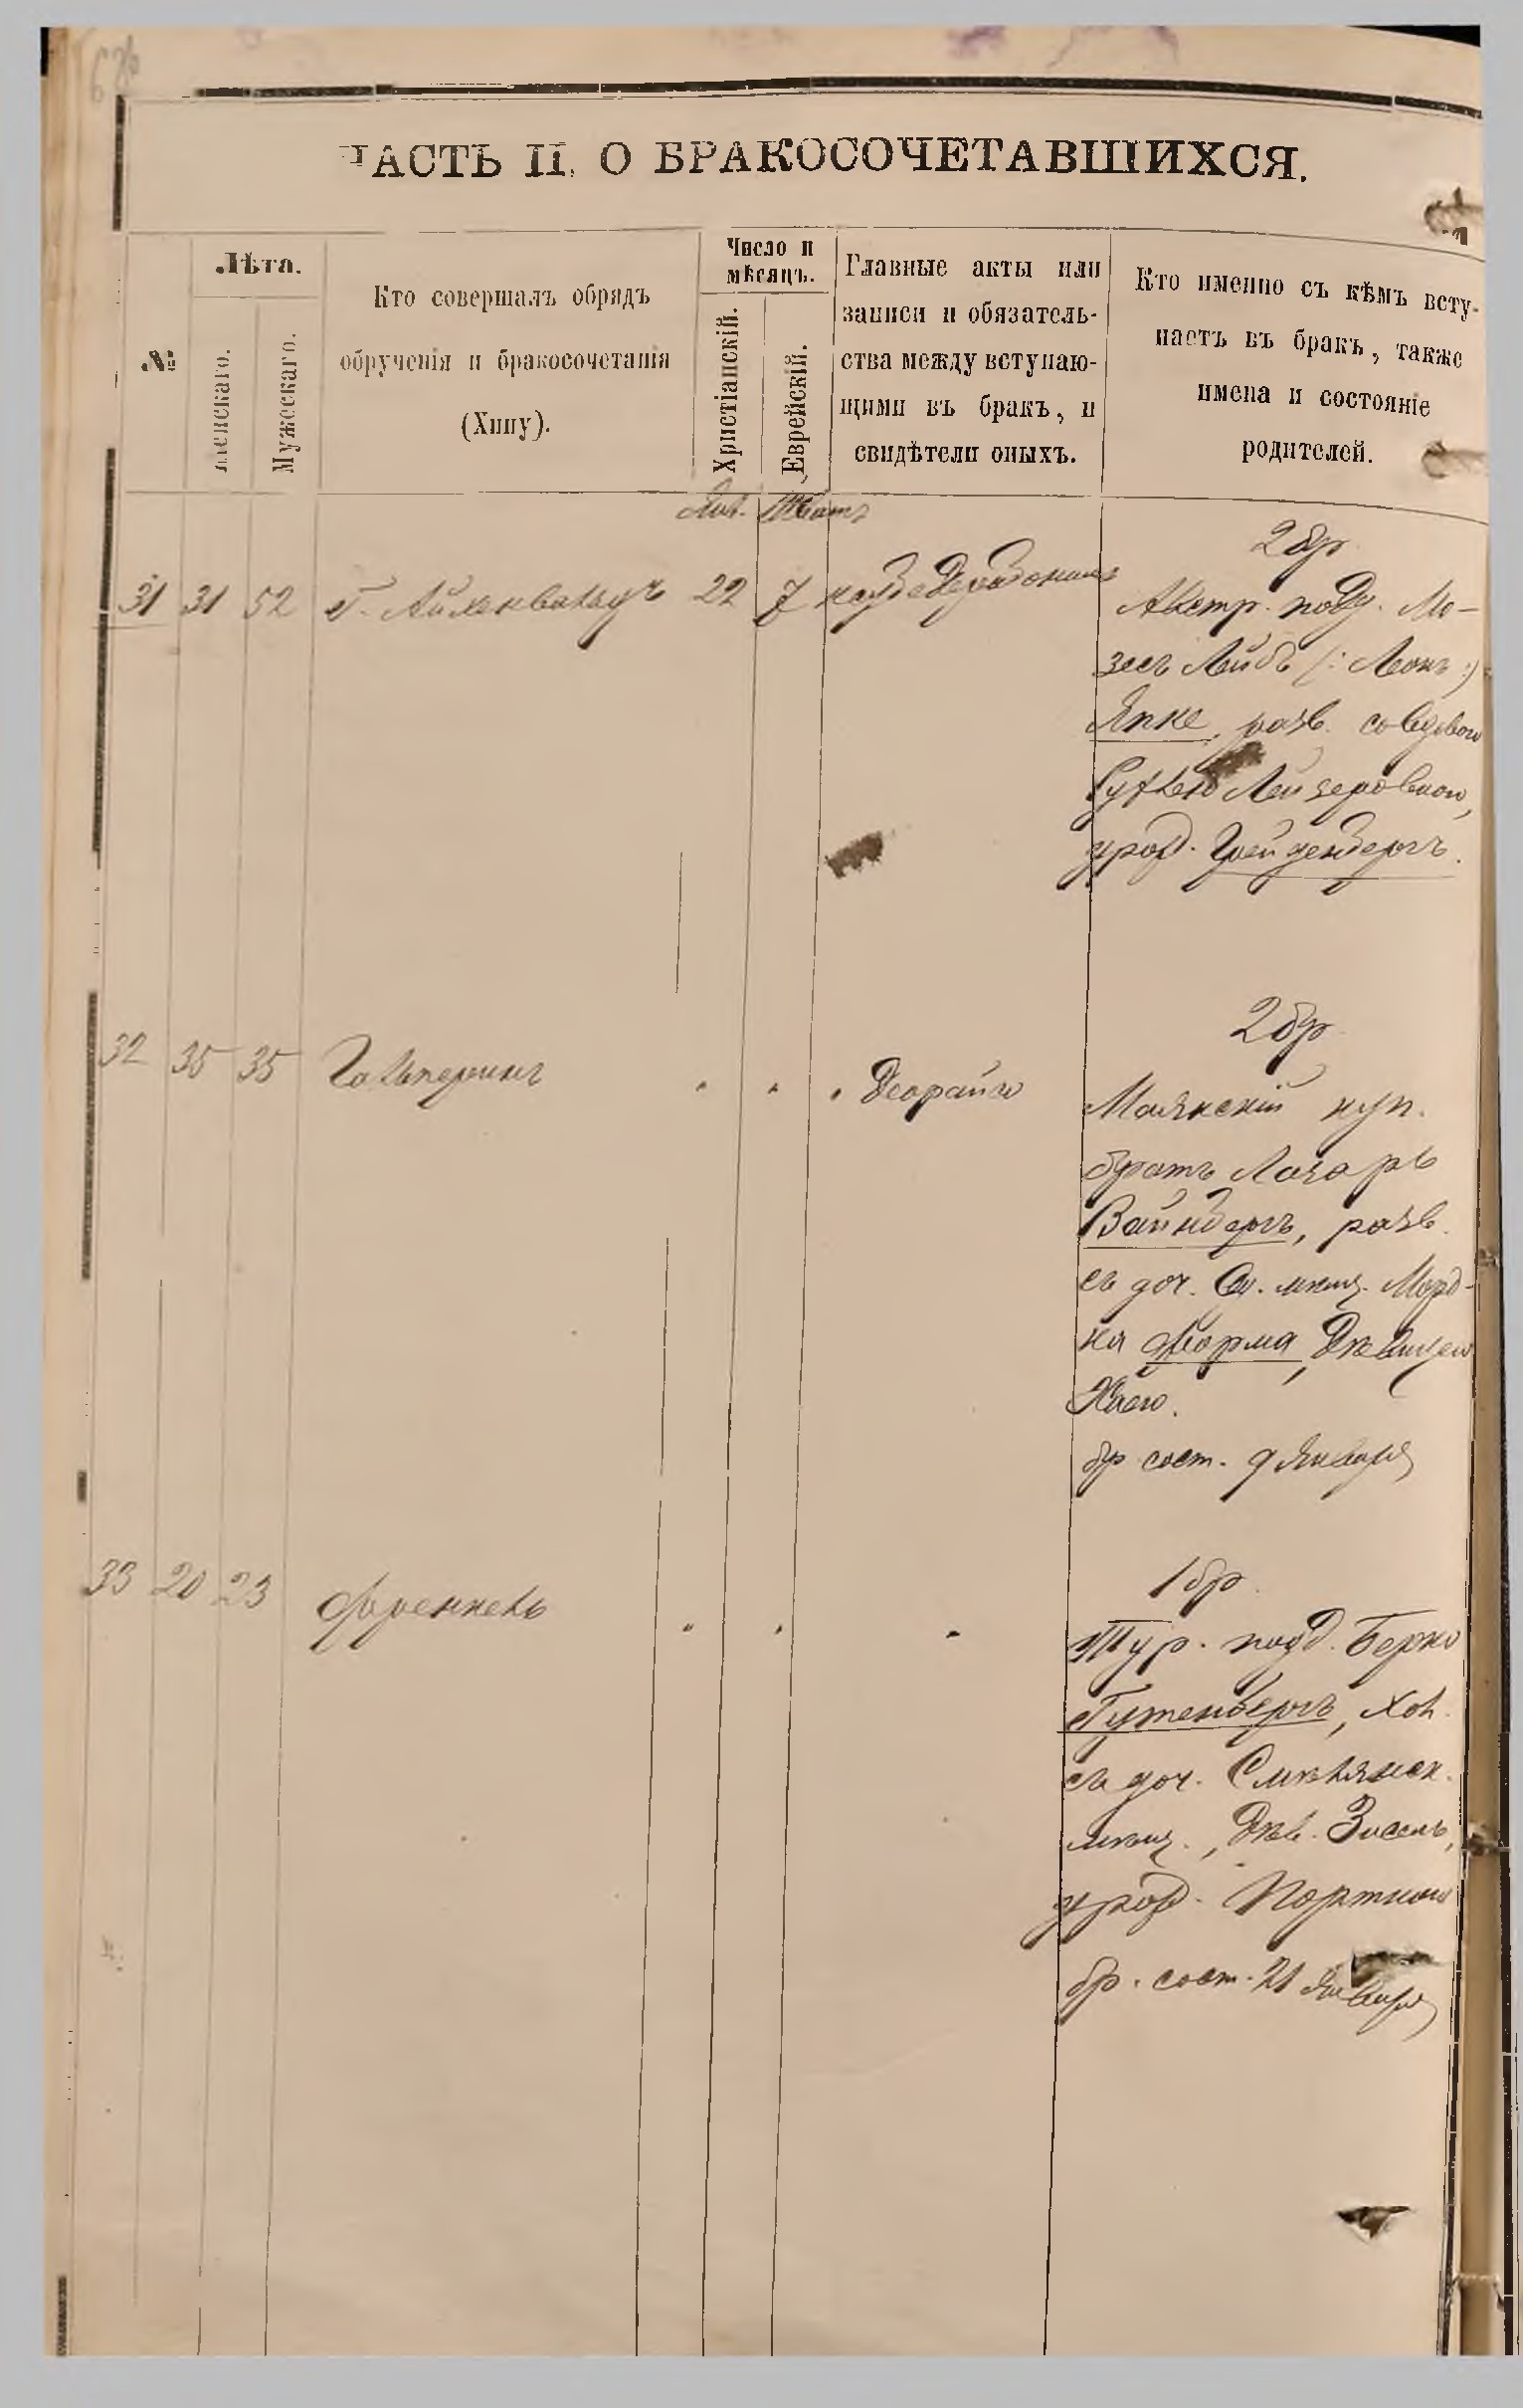 ЧАСТЬ II, О БРАКОСОЧЕТАВШИХСЯ.
№
Лѣта.
Женскаго.
Мужескаго.
Кто совершалъ обрядъ
обрученія и бракосочетанія
(Хипу).
Число и
мѣсяцъ.
Христіанскій.
Еврейскій.
Главные акты или
записи и обязатель-
ства между вступаю-
щими въ бракъ, и
свидѣтели оныхъ.
Кто именно съ кѣмъ всту-
паетъ въ бракъ, также
имена и состояніе
родителей.
Янв. Шватъ
2 бр.
31 31 52 Г. Айхенвальдъ 22 7
Австр. подд. Мо-
зесъ Лейбъ (: Леонъ :)
Япке, разв. со вдовою
Сухлею Лейзеровною,
урод. Грейденбергъ.
2 бр.
32 35 35 Гальперинъ " " " Деорайго
Маякскій куп.
братъ Лазарь
Вайнбергъ, разв.
съ доч. Од. мѣщ. Морд-
ка Форма, дѣвицею
Хаею.
бр. сост. 9 Января
1 бр.
33 20 23 Френкель " " "
Тур. подд. Берко
Гутенбергъ, хол.
съ доч. Смѣлянск.
мѣщ., дѣв. Зисель,
урод. Портною
бр. сост. 21 Января